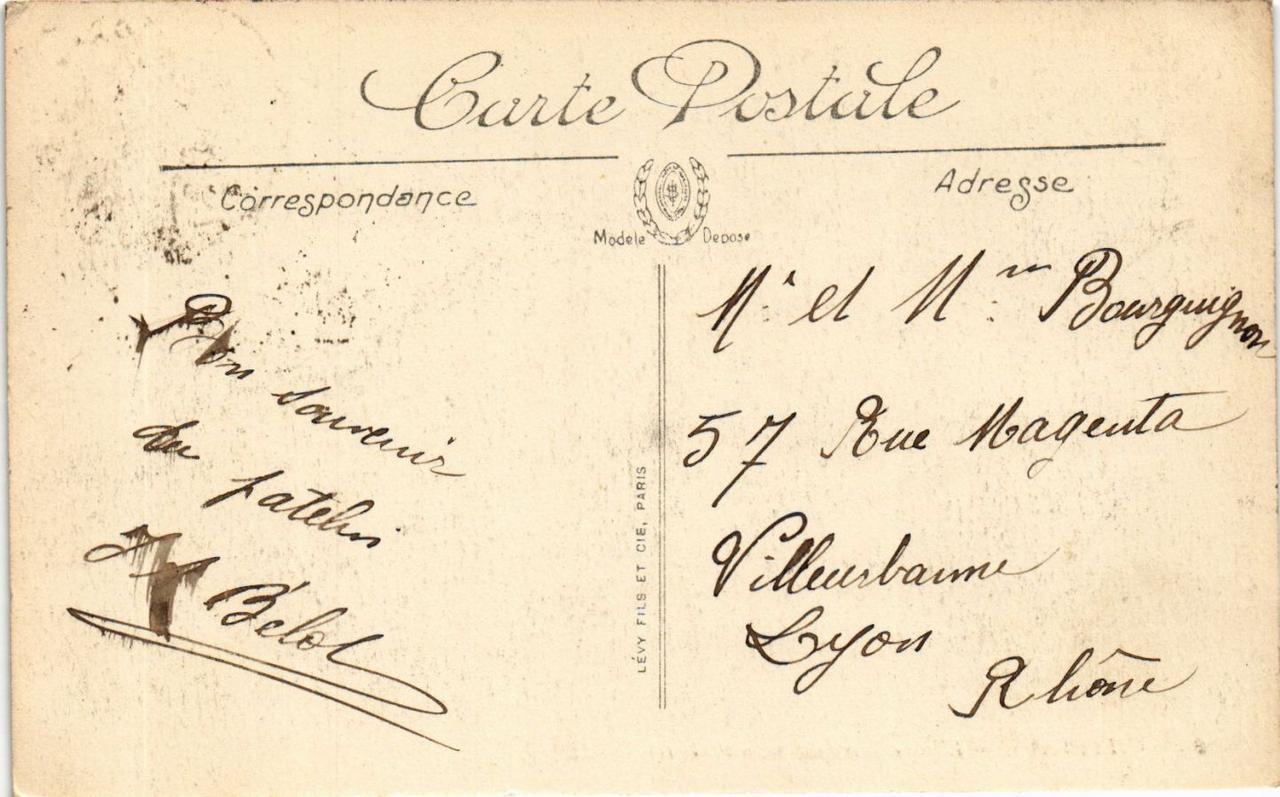 Carte Postale
Correspondance
Adresse
Modele Deposé
Bon souvenir
du
patelin
Bélot
LÉVY FILS ET CIE, PARIS
Mr et Mme Bourguignon
57 Rue Magenta
Villeurbanne
Lyon
Rhône